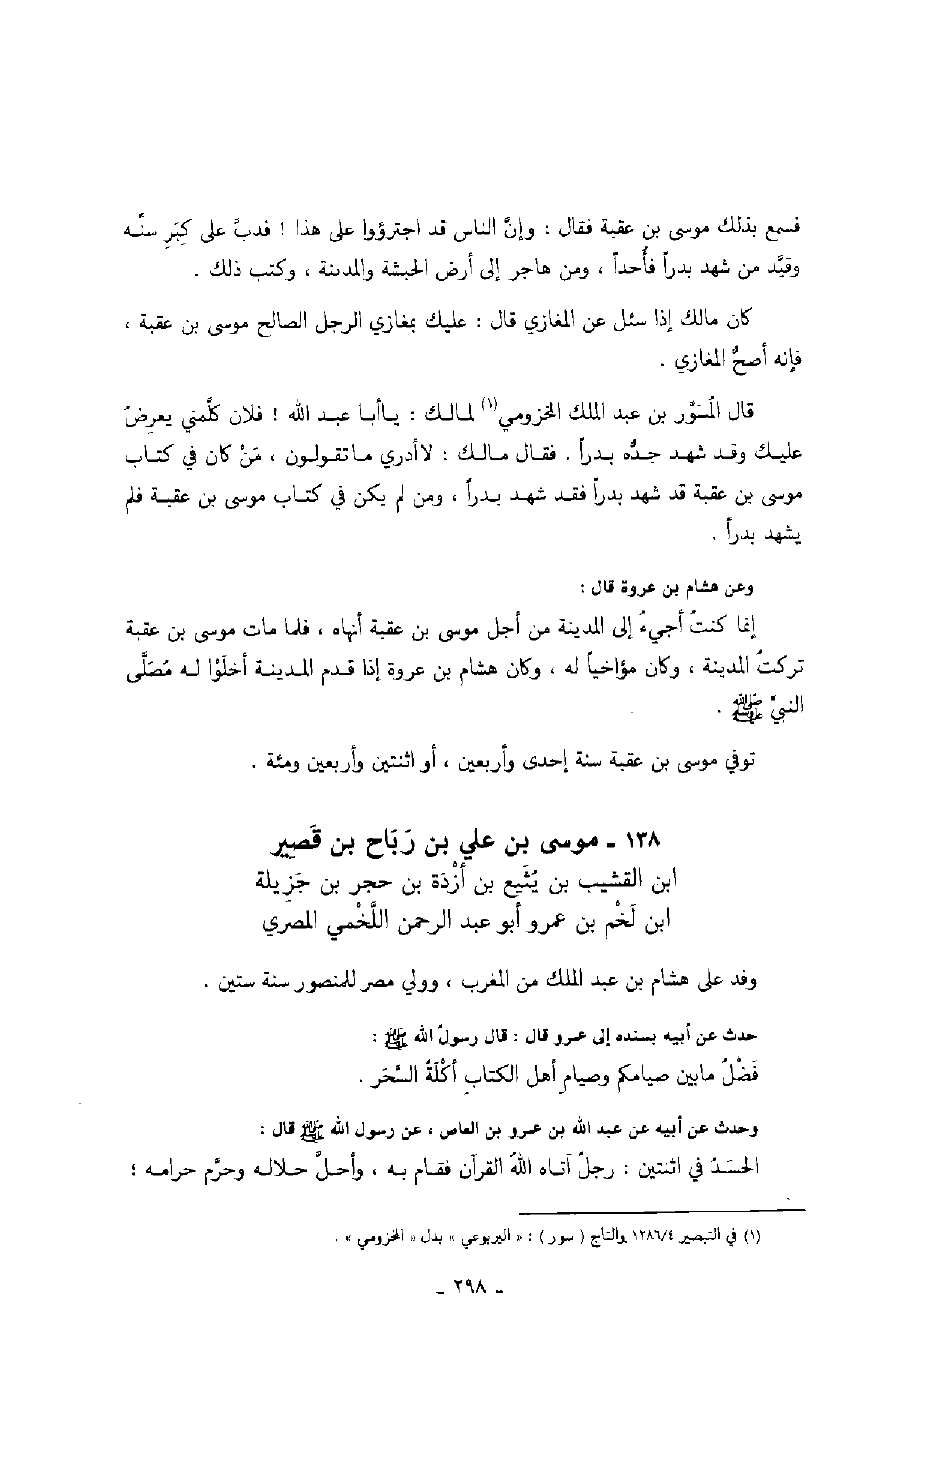 فسمع بذلك موسى بن عقبة فقال : وإنَّ الناس قد اجترؤوا على هذا ! فدبَّ على كِبَرِ سنَّه
وقيَّد من شهد بدراً فأُحداً ، ومن هاجر إلى أرض الحبشة والمدينة ، وكتب ذلك .
كان مالك إذا سئل عن المغازي قال : عليك بمغازي الرجل الصالح موسى بن عقبة ،
فإنه أصحُّ المغازي .
قال المُسَوَّر بن عبد الملك المخزومي(١) لمالك : ياأبا عبد الله ! فلان كلَّمني يعرضُ
عليك وقد شهد جدُّه بدراً . فقال مالك : لاأدري ماتقولون ، مَنْ كان في كتاب
موسى بن عقبة قد شهد بدراً فقد شهد بدراً ، ومن لم يكن في كتاب موسى بن عقبة فلم
يشهد بدراً .
وعن هشام بن عروة قال :
إنما كنتُ أجيءُ إلى المدينة من أجل موسى بن عقبة أنهاه ، فلما مات موسى بن عقبة
تركتُ المدينة ، وكان مؤاخياً له ، وكان هشام بن عروة إذا قدم المدينة أخلَوْا له مُصَلَّى
النبيِّ ﷺ .
توفي موسى بن عقبة سنة إحدى وأربعين ، أو اثنتين وأربعين ومئة .
١٣٨ ـ موسى بن علي بن رَبَاح بن قَصِير
ابن القشيب بن يُثَيع بن أزْدَة بن حجر بن جَزِيلة
ابن لَخْم بن عمرو أبو عبد الرحمن اللَّخْمي المصري
وفد على هشام بن عبد الملك من المغرب ، وولي مصر للمنصور سنة ستين .
حدث عن أبيه بسنده إلى عمرو قال : قال رسولُ الله ﷺ :
فَضْلُ مابين صيامكم وصيام أهل الكتابِ أكْلَةُ السَّحَر .
وحدث عن أبيه عن عبد الله بن عمرو بن العاص ، عن رسول الله ﷺ قال :
الحَسَدُ في اثنتين : رجلٌ آتاه اللهُ القرآن فقام به ، وأحلَّ حلاله وحرَّم حرامه ؛
(١) في التبصير ١٢٨٦/٤ والتاج ( سور ) : « اليربوعي » بدل « المخزومي » .
ـ ٢٩٨ ـ